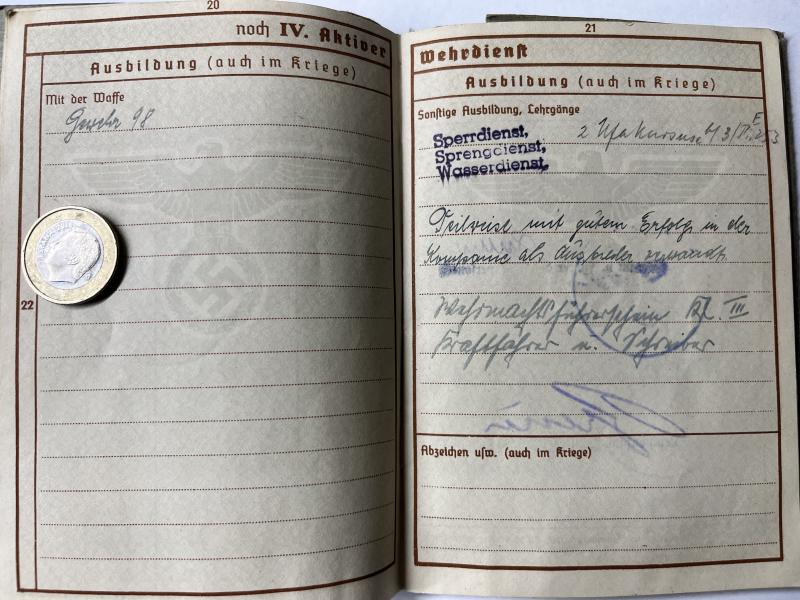 20
noch IV. Aktiver
Ausbildung (auch im Kriege)
Mit der Waffe
Gewehr 98
22
21
Wehrdienst
Ausbildung (auch im Kriege)
Sonstige Ausbildung, Lehrgänge
Sperrdienst,
Sprengdienst,
Wasserdienst,
2 Ufa Kursuse
Teilweise mit gutem Erfolg in der
Kompanie als Ausbilder verwandt
Wehrmachtsführerschein Kl. III
Kraftfahrer u. Schreiber
Abzeichen usw. (auch im Kriege)